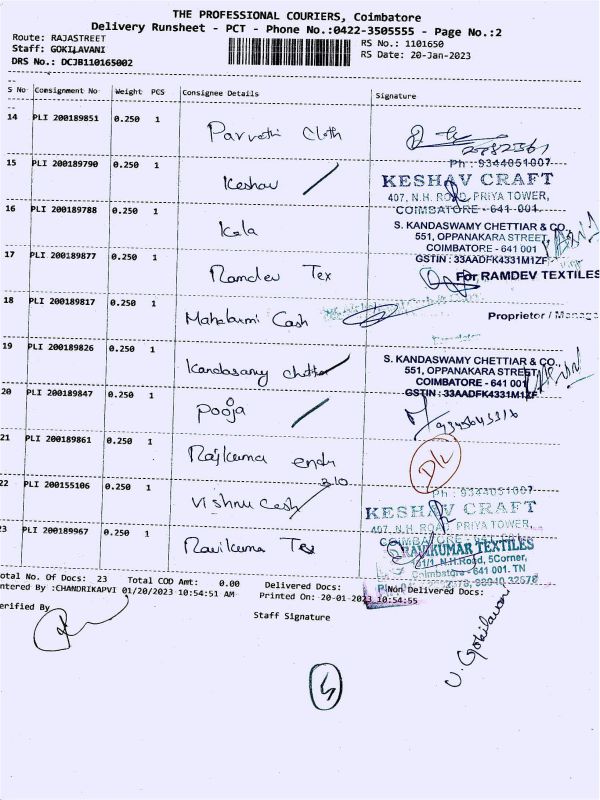 THE PROFESSIONAL COURIERS, Coimbatore
Delivery Runsheet - PCT - Phone No.:0422-3505555 - Page No.:2
Route: RAJASTREET
RS No.: 1101650
Staff: GOKILAVANI
RS Date: 20-Jan-2023
DRS No.: DCJB110165002
S No Consignment No Weight PCS Consignee Details Signature
14 PLI 200189851 0.250 1 Parvathi Cloth
Ph : 9344051007
15 PLI 200189790 0.250 1 Keshav
KESHAV CRAFT
407, N.H. ROAD, PRIYA TOWER,
COIMBATORE - 641 001.
16 PLI 200189788 0.250 1 Kala
S. KANDASWAMY CHETTIAR & CO.,
551, OPPANAKARA STREET,
COIMBATORE - 641 001
GSTIN : 33AADFK4331M1ZF
17 PLI 200189877 0.250 1 Ramdev Tex
For RAMDEV TEXTILES
Proprietor / Manage
18 PLI 200189817 0.250 1 Mahalaxmi Cash
19 PLI 200189826 0.250 1 Kandasamy chettiar
S. KANDASWAMY CHETTIAR & CO.,
551, OPPANAKARA STREET,
COIMBATORE - 641 001
GSTIN : 33AADFK4331M1ZF
20 PLI 200189847 0.250 1 Pooja
21 PLI 200189861 0.250 1 Rajkumar
D/L
22 PLI 200155106 0.250 1 Vishnu Cash
Ph : 9344051007
KESHAV CRAFT
407, N.H. ROAD, PRIYA TOWER,
COIMBATORE - 641 001
23 PLI 200189967 0.250 1 Ravikumar Tex
RAVIKUMAR TEXTILES
N.H.Road, 5Corner,
Coimbatore - 641 001. TN
otal No. Of Docs: 23 Total COD Amt: 0.00 Delivered Docs: Non Delivered Docs:
ntered By :CHANDRIKAPVI 01/20/2023 10:54:51 AM Printed On: 20-01-2023 10:54:55
erified By
Staff Signature
U. Gokilavani